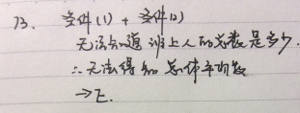 13. 条件(1) + 条件(2)
无法知道 以上人的总数是多少.
∴ 无法得知 总体平均数
→ E.